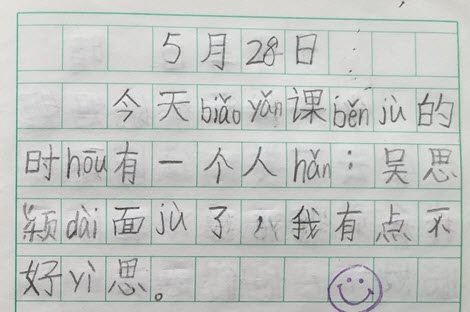 5月28日
今天biǎo yǎn课běn jù的
时hōu有一个人hǎn：吴思
颖dài面jù了，我有点不
好yì思。